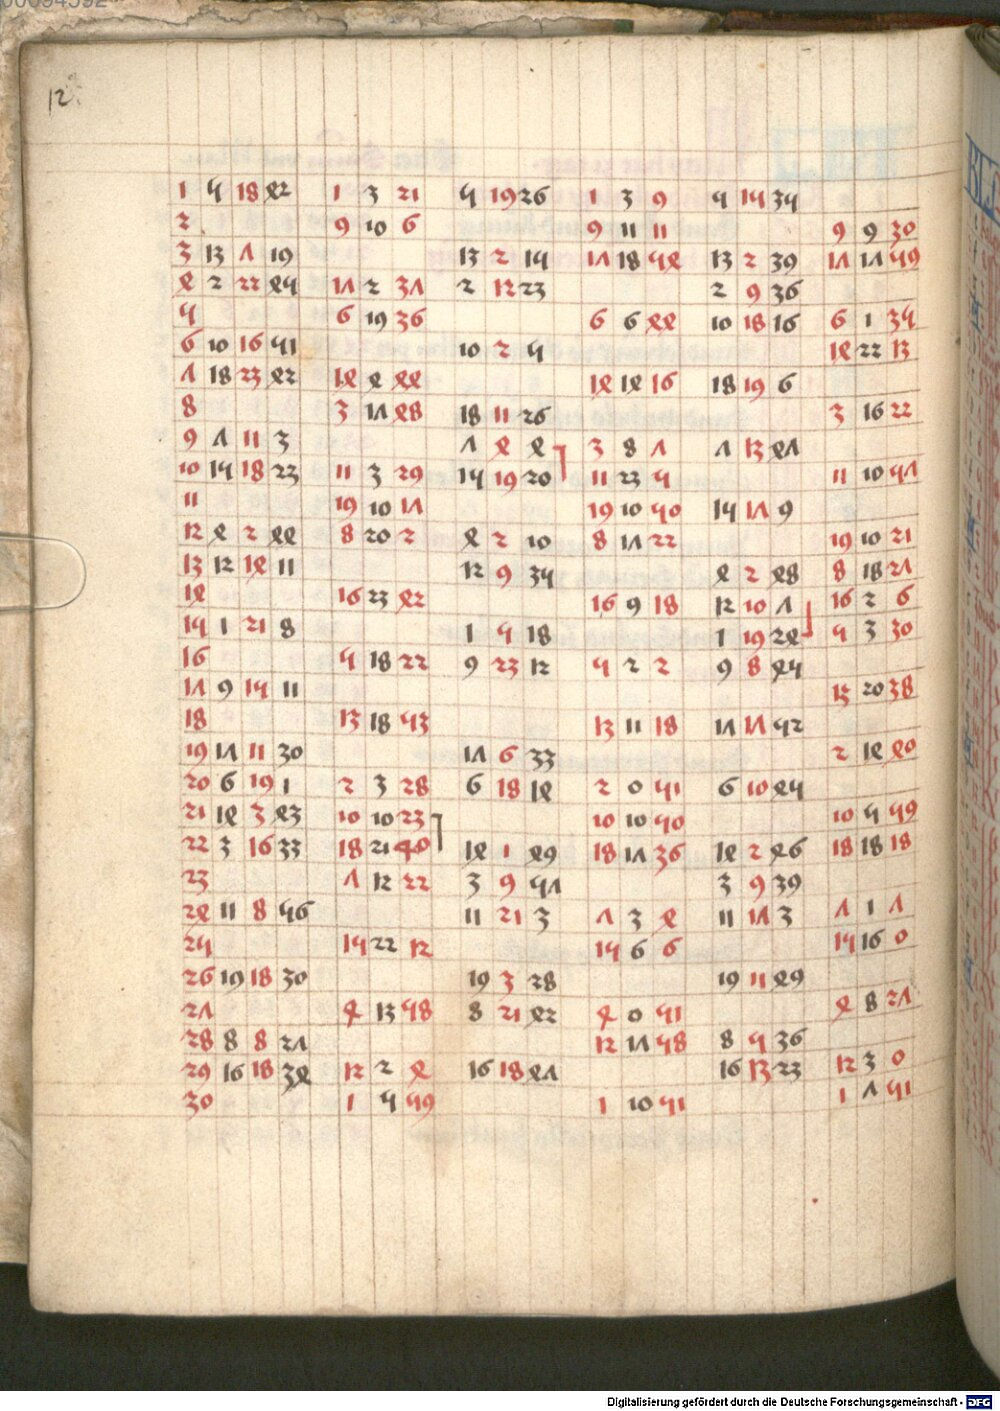 12
1 5 18 42 1 3 21 5 19 26 1 3 9 5 15 35
2 9 10 6 9 11 11 9 9 30
3 13 7 19 13 2 15 17 18 54 13 2 39 17 17 59
4 2 22 45 17 2 37 2 12 23 2 9 36
5 6 19 36 6 6 44 10 18 16 6 1 35
6 10 16 51 10 2 5 14 22 13
7 18 23 42 14 4 44 14 14 16 18 19 6
8 3 17 48 18 11 26 3 16 22
9 7 11 3 7 4 4 3 8 7 7 13 47
10 15 18 23 11 3 29 15 19 20 11 23 5 11 10 57
11 19 10 17 19 10 50 15 17 9
12 4 2 44 8 20 2 4 2 10 8 17 22 19 10 21
13 12 14 11 12 9 35 4 2 48 8 18 27
14 16 23 42 16 9 18 12 10 7 16 2 6
15 1 21 8 1 5 18 1 19 24 5 3 30
16 5 18 22 9 23 12 5 2 2 9 8 45
17 9 15 11 13 20 38
18 13 18 53 13 11 18 17 17 52
19 17 11 30 17 6 33 2 14 40
20 6 19 1 2 3 28 6 18 14 2 0 51 6 10 45
21 14 3 43 10 10 23 10 10 50 10 5 59
22 3 16 33 18 21 40 14 1 49 18 17 36 14 2 46 18 18 18
23 7 12 22 3 9 57 3 9 39
24 11 8 56 11 21 3 7 3 4 11 17 3 7 1 7
25 15 22 12 15 6 6 15 16 0
26 19 18 30 19 3 28 19 11 49
27 4 13 58 8 21 42 4 0 51 4 8 27
28 8 8 27 12 17 58 8 5 36
29 16 18 34 12 2 4 16 18 47 16 13 23 12 3 0
30 1 5 59 1 10 51 1 7 51
Digitalisierung gefördert durch die Deutsche Forschungsgemeinschaft - DFG